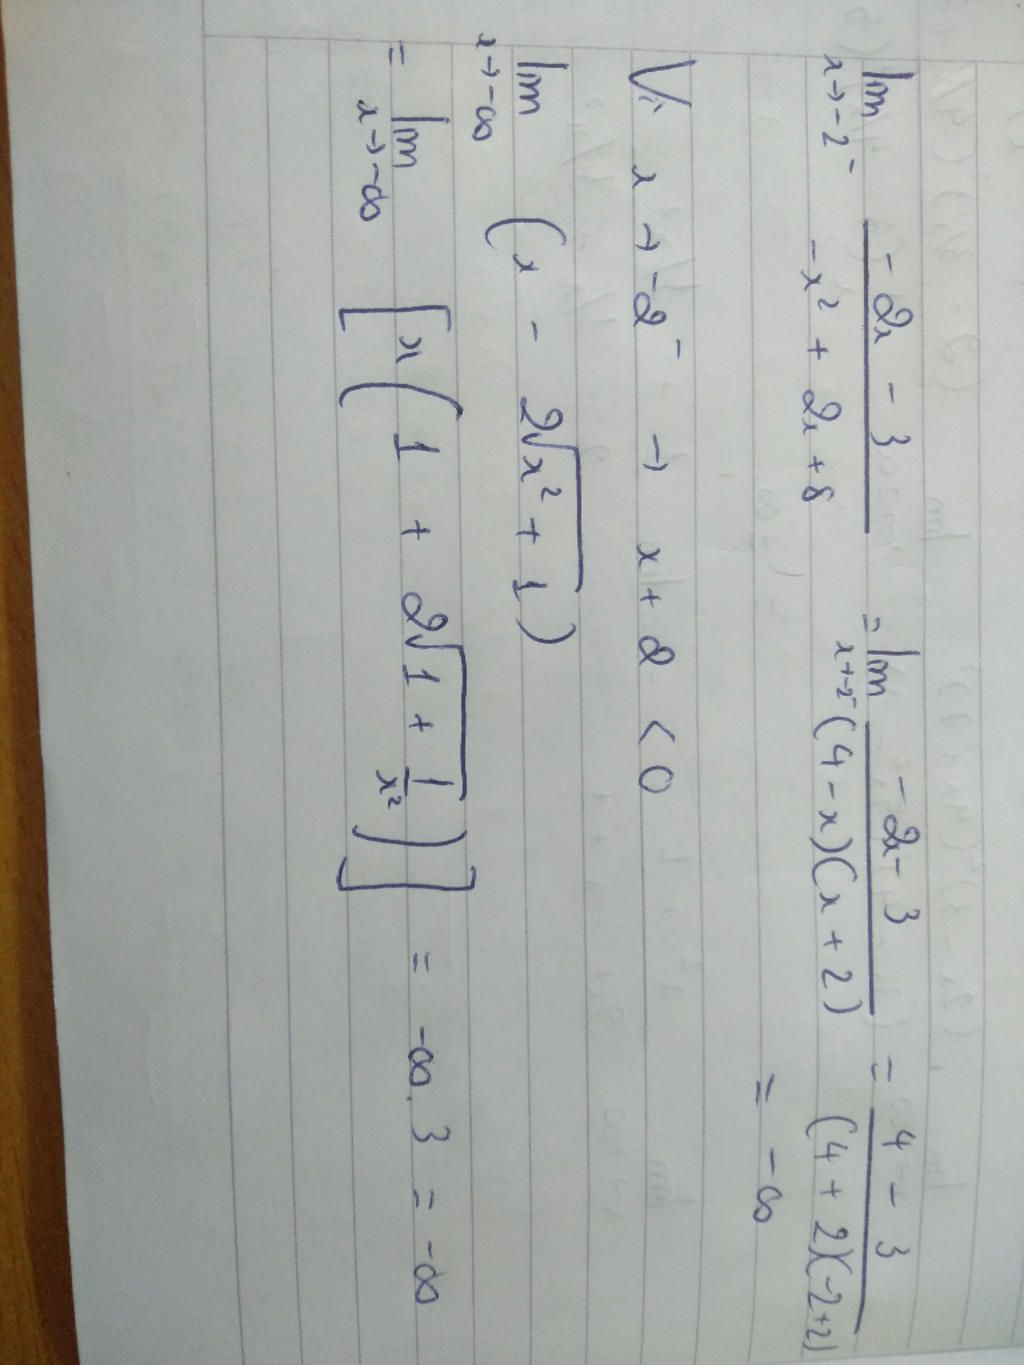 lim x→-2⁻ (-2x - 3)/(-x² + 2x + 8) = lim x→-2⁻ (-2x - 3)/((4 - x)(x + 2)) = (4 - 3)/((4 + 2)(-2+2))
= -∞
Vì x → -2⁻ → x + 2 < 0
lim x→-∞ (x - 2√(x² + 1))
= lim x→-∞ [x(1 + 2√(1 + 1/x²))] = -∞.3 = -∞